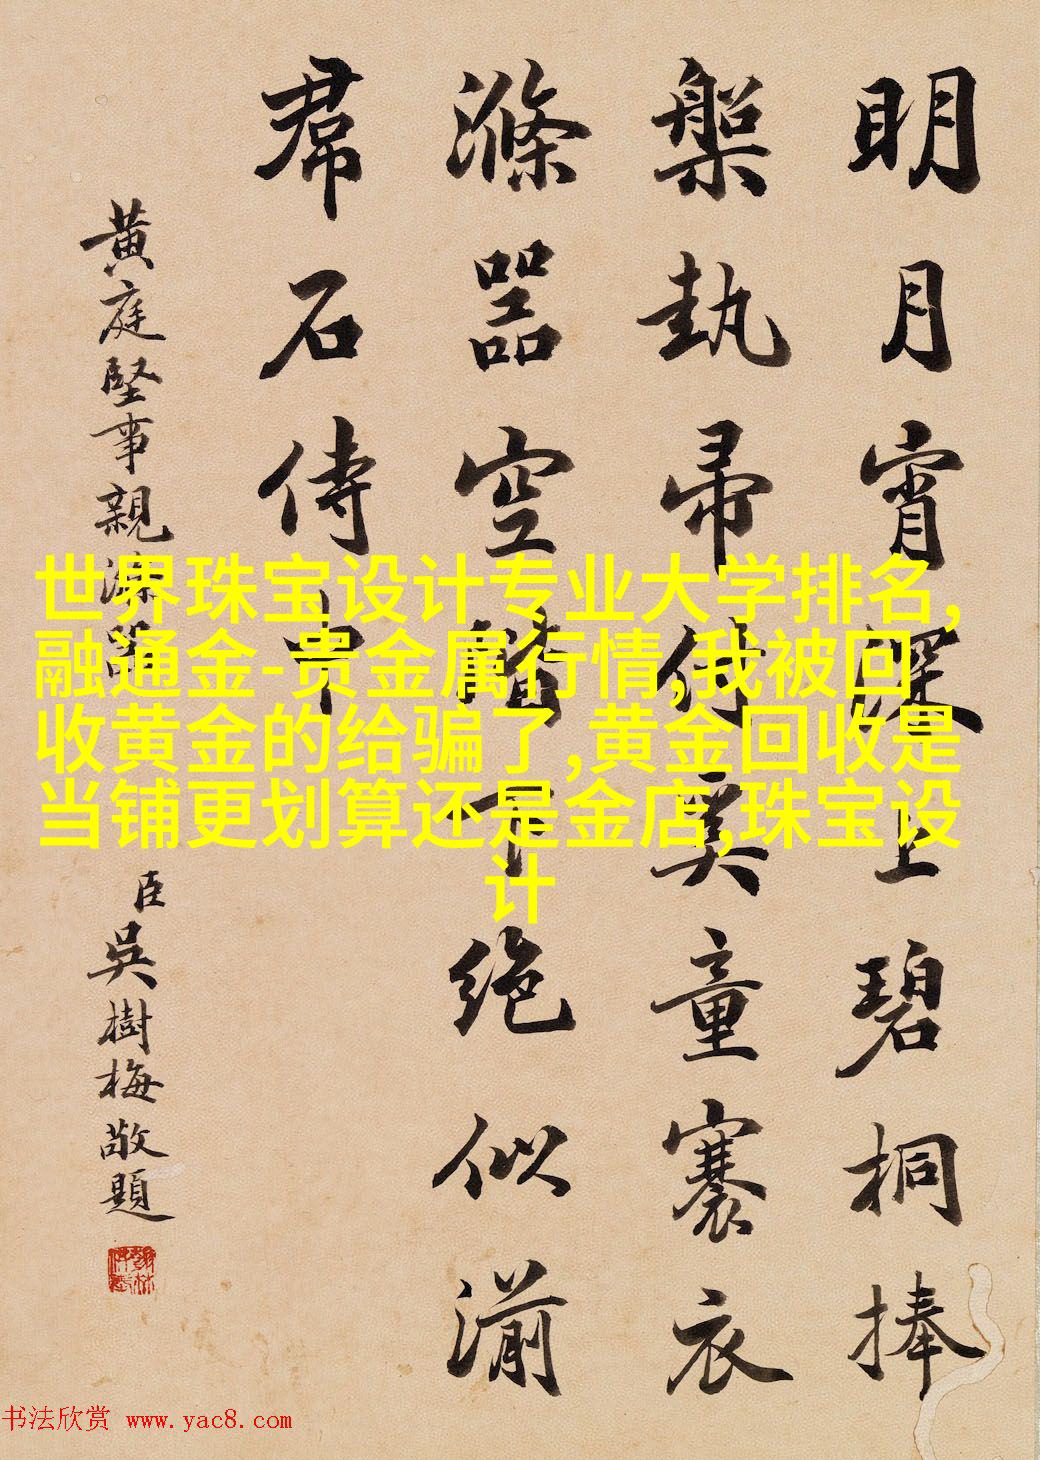 明月宵深上碧桐捧
槃執帚侍奚童褰衣
滌器空階下絶似湔
帬石侍中
黃庭堅事親滌器
臣吳樹梅敬題
世界珠宝设计专业大学排名,
融通金-贵金属行情,我被回
收黄金的给骗了,黄金回收是
当铺更划算还是金店,珠宝设
计
书法欣赏 www.yac8.com